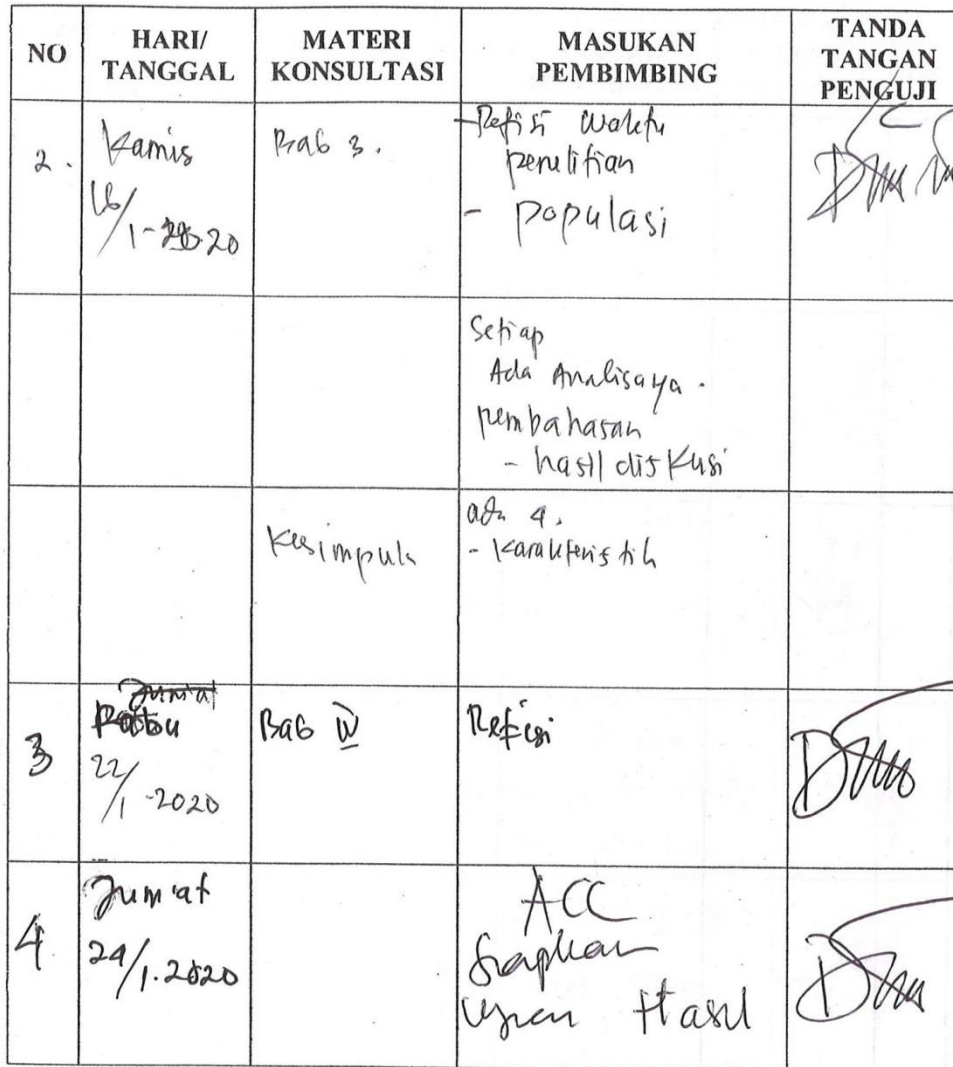 NO
HARI/
TANGGAL
MATERI
KONSULTASI
MASUKAN
PEMBIMBING
TANDA
TANGAN
PENGUJI
2.
Kamis
16/1-2020
Bab 3.
- Refisi waktu
penelitian
- populasi
Setiap
Ada Analisaya.
pembahasan
- hasil diskusi
Kesimpul
ada 4.
- Karakteristik
3
Jumat
Rabu
22/1-2020
Bab IV
Refisi
4
Jum'at
24/1.2020
ACC
Siapkan
Ujian Hasil